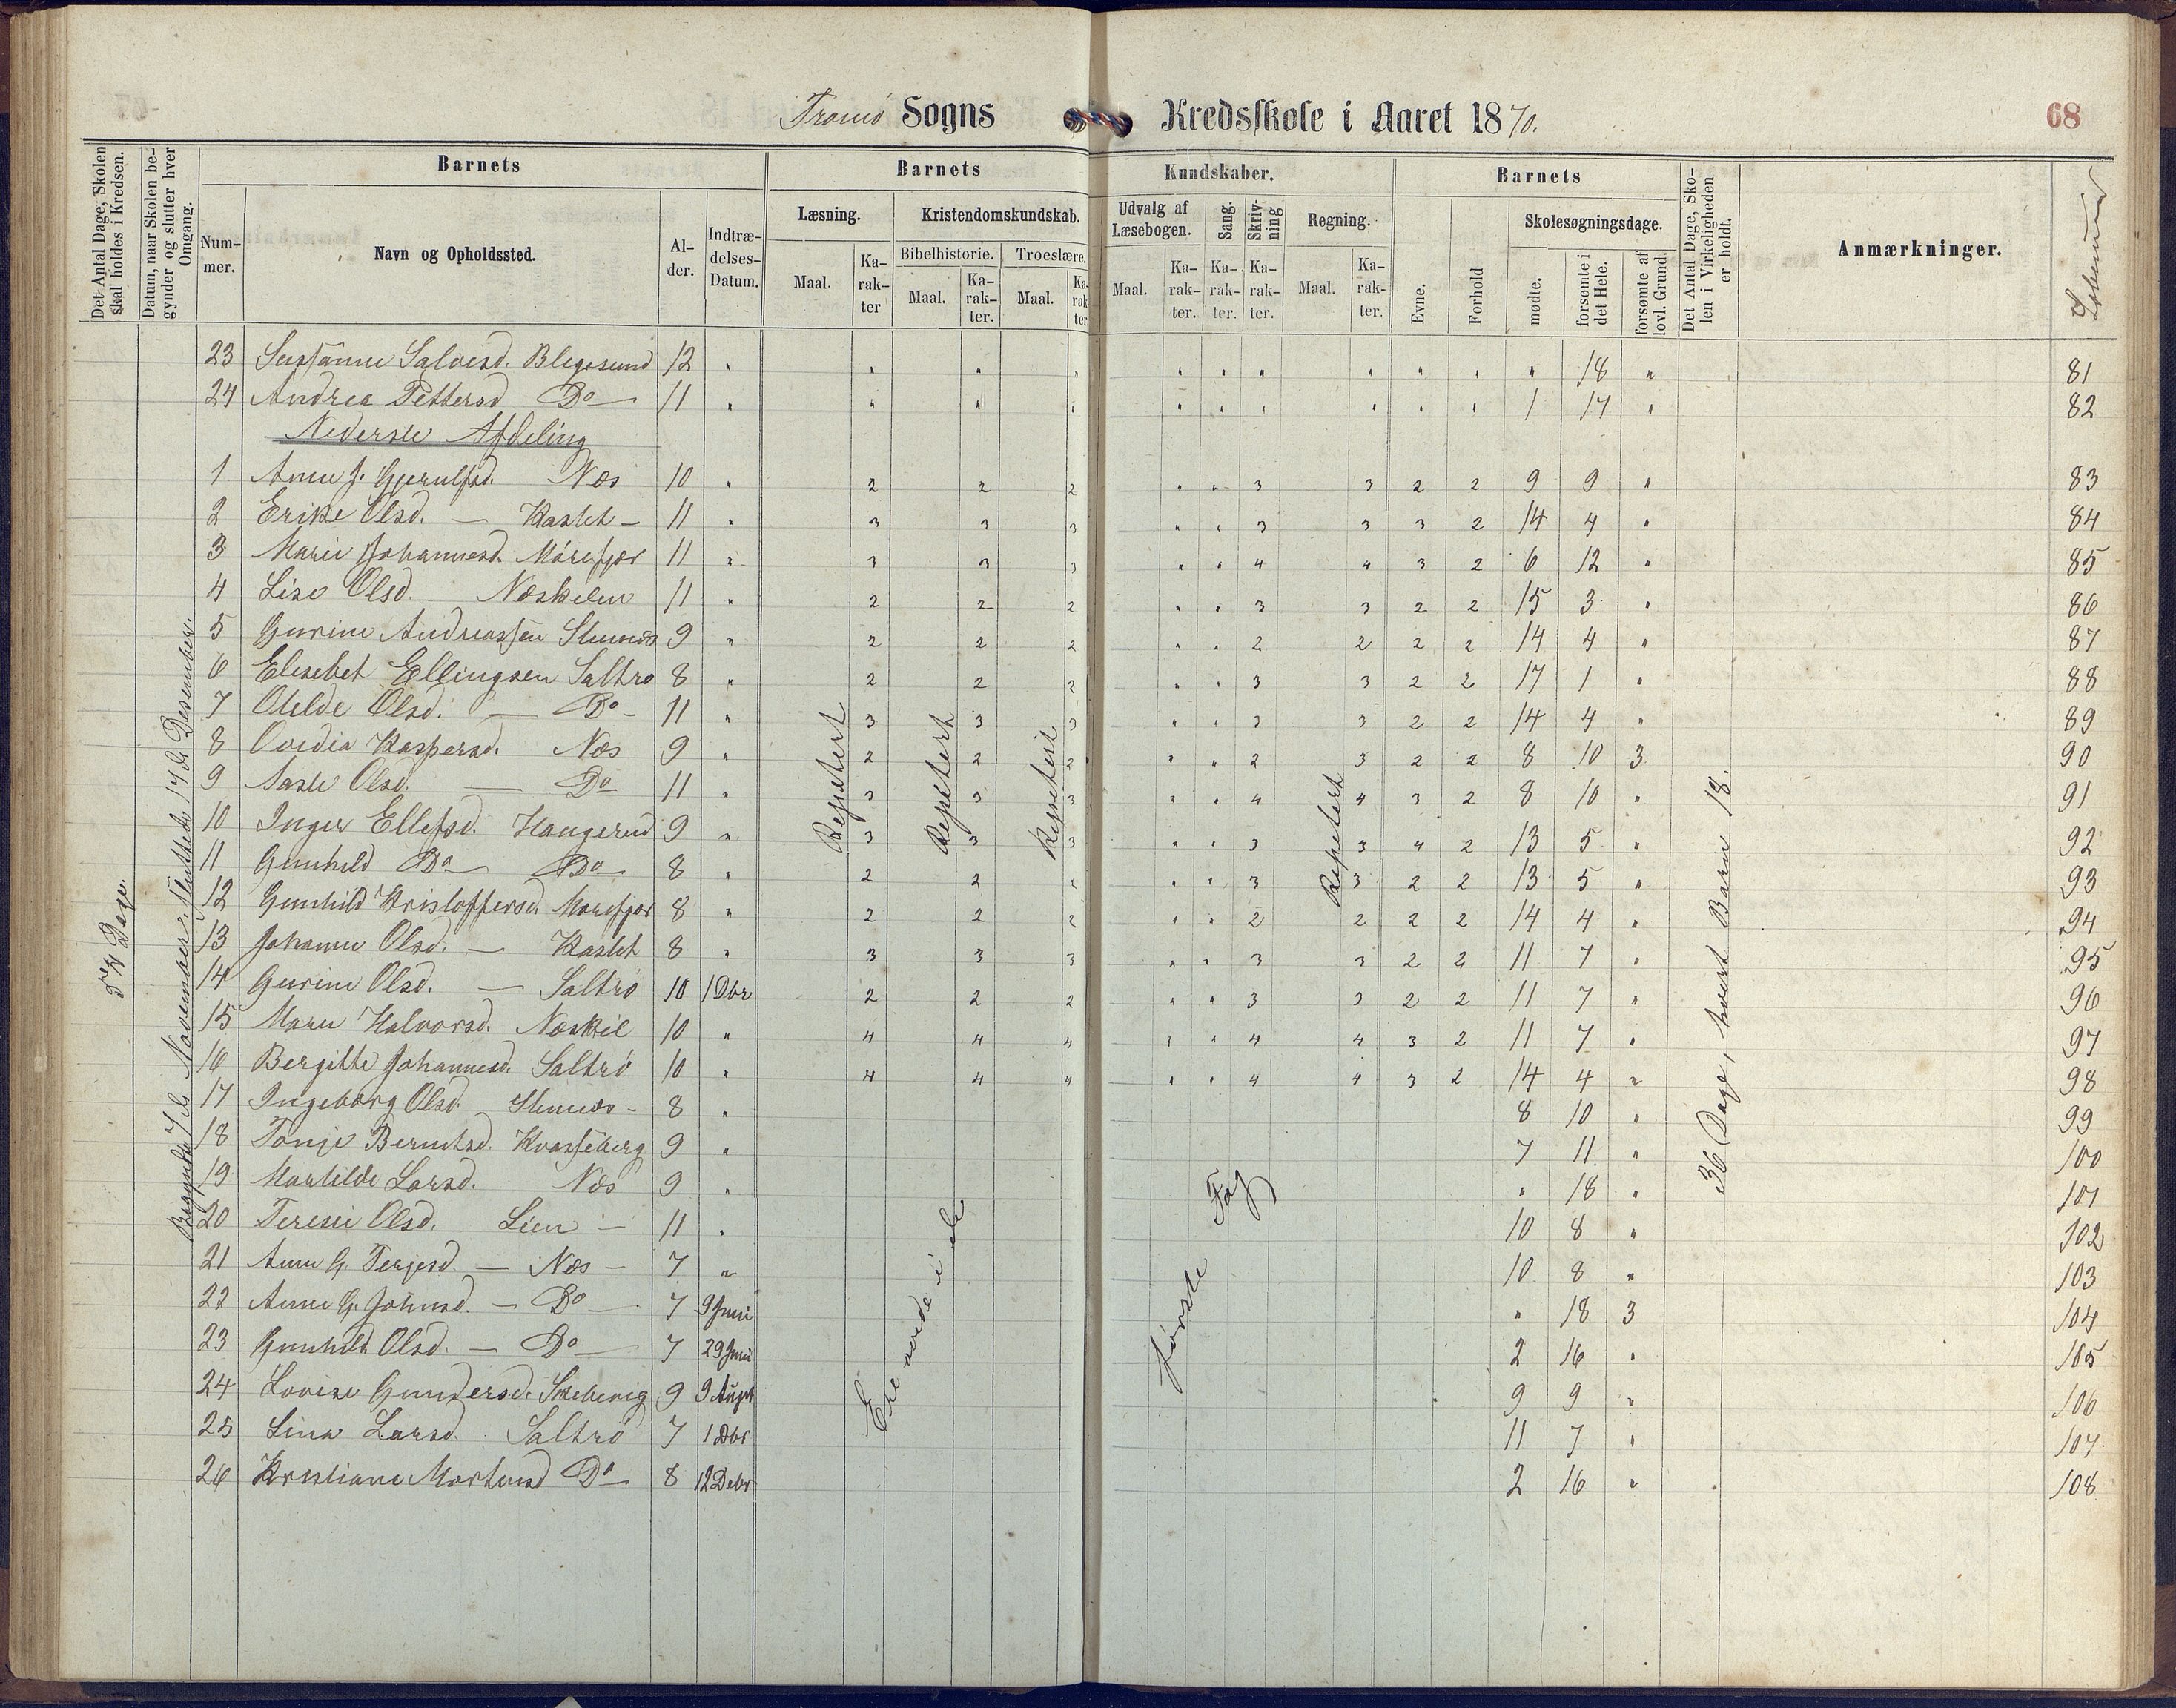 Tromø Sogns Kredsskole i Aaret 1870.
68
Det Antal Dage, Skolen skal holdes i Kredsen.
Datum, naar Skolen begynder og slutter hver Omgang.
Barnets
Barnets
Kundskaber.
Barnets
Det Antal Dage, Skolen i Virkeligheden er holdt.
Anmærkninger.
Nummer.
Navn og Opholdssted.
Alder.
Indtrædelses-Datum.
Læsning.
Kristendomskundskab.
Udvalg af Læsebogen.
Sang.
Skrivning
Regning.
Evne.
Forhold
Skolesøgningsdage.
Bibelhistorie.
Troeslære.
Maal. Karakter Maal. Karakter. Maal. Karakter. Maal. Karakter. Karakter. Karakter. Maal. Karakter.
mødte.
forsømte i det Hele.
forsømte af lovl. Grund.
23 Susanne Salvesd. 12 " " " " " " " " " " " 18 " 81
24 Andrea Pettersd Do 11 " " " " " " " " " " 1 17 " 82
Nederste Afdeling
1 Anne J. Gjerulfsd. Næs 10 " 2 2 2 " " 3 3 2 2 9 9 " 83
2 Erike Olsd. — Kastet — 11 " 3 3 3 " " 3 3 3 2 14 4 " 84
3 Marie Johannesd. Mørefjær 11 " 3 3 3 " " 4 4 3 2 6 12 " 85
4 Lise Olsd. Næskilen 11 " 2 2 2 " " 3 3 2 2 15 3 " 86
5 Gurine Andreassen 9 " 2 2 2 " " 2 2 2 2 14 4 " 87
6 Elesebet Ellingsen Saltrø 8 " 2 2 2 " " 3 3 2 2 17 1 " 88
7 Olsd. — Do — 11 " 3 3 3 " " 3 3 2 2 14 4 " 89
8 Ovedia Kaspersd. Næs 9 " 2 2 2 " " 2 3 2 2 8 10 3 90
9 Aaste Olsd. — Do 11 " 3 3 3 " " 4 4 3 2 8 10 " 91
10 Inger Ellefsd. Haugerud 9 " 3 3 3 " " 3 3 4 2 13 5 " 92
11 Gunhild Do Do 8 " 2 2 " " " 3 3 2 2 13 5 " 93
12 Gunhild Kristoffersd. Mørefjær 8 " 2 2 2 " " 2 2 2 2 14 4 " 94
13 Johanne Olsd. — Kastet 8 " 3 3 3 " " 3 3 2 2 11 7 " 95
14 Gurine Olsd. — Saltrø 10 1 Dbr 2 2 2 " " 3 3 2 2 11 7 " 96
15 Maren Halvorsd. Næskil 10 " 4 4 4 " " 4 4 3 2 11 7 " 97
16 Bergitte Johannesd. Saltrø 10 " 4 4 4 " " 4 4 3 2 14 4 " 98
17 Ingeborg Olsd. 8 " 8 10 " 99
18 Tonje Berntsd. Kvasseberg 9 " 7 11 " 100
19 Martilde Larsd. Næs 9 " " 18 " 101
20 Teresie Olsd. Lien — 11 " 10 8 " 102
21 Anne G. Terjesd — Næs — 7 " 10 8 " 103
22 Anne G. Johnsd. — Do — 7 9 Juni " 18 3 104
23 Gunhild Olsd. — Do — 7 29 Juni 2 16 " 105
24 Lovise Gundersd. 9 9 Augst 9 9 " 106
25 Lina Larsd. Saltrø 7 1 Dbr 11 7 " 107
26 Kristiane Mortensd Do 8 12 Debr 2 16 " 108
Dage.
Begyndte 7de November. Sluttede 17de Desember.
Repetert
Repetert
Repetert
Repetert
Ere øvede i de første Fag
36 Dage, hvert Barn 18.